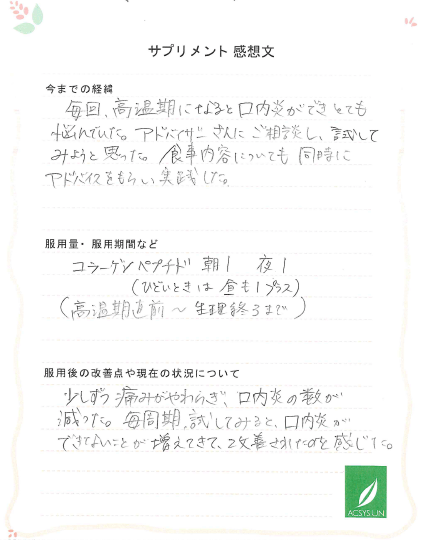 サプリメント 感想文
今までの経緯
毎回、高温期になると口内炎ができとても
悩んでいた。アドバイザーさんにご相談し、試して
みようと思った。食事内容についても同時に
アドバイスをもらい実践した。
服用量・服用期間など
コラーゲンペプチド 朝1 夜1
(ひどいときは昼も1プラス)
(高温期直前～生理終るまで)
服用後の改善点や現在の状況について
少しずつ痛みがやわらぎ、口内炎の数が
減った。毎周期、試してみると、口内炎が
できないことが増えてきて、改善されたのを感じた。
ACSYSUN